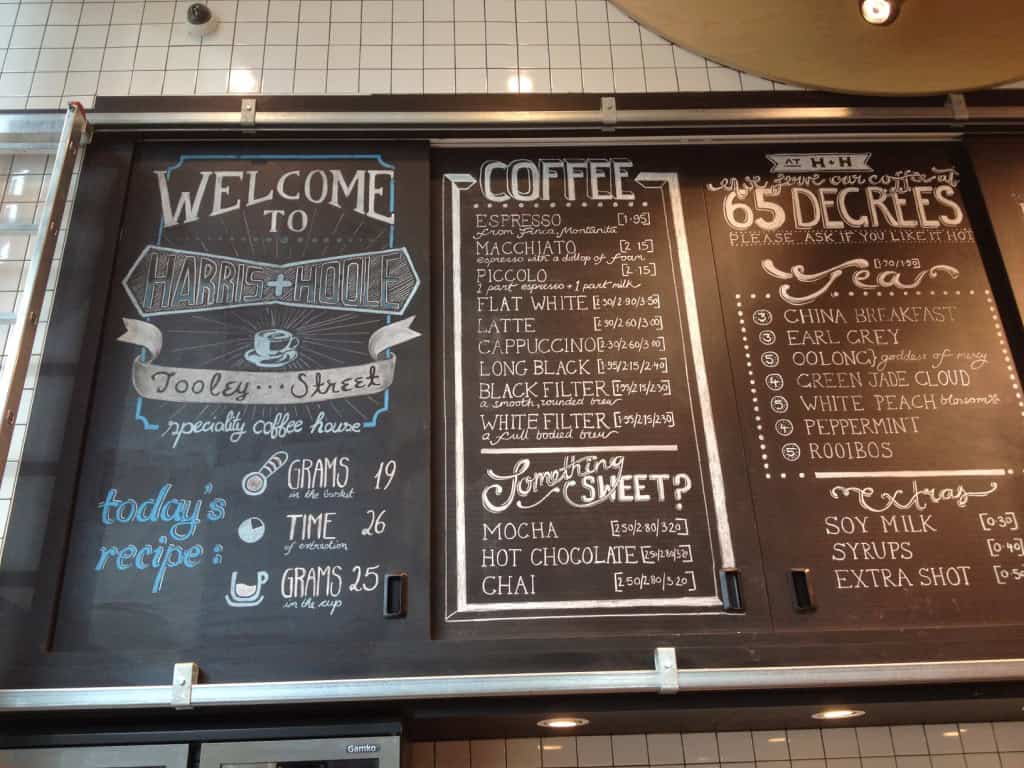 WELCOME
TO
HARRIS + HOOLE
Tooley... Street
speciality coffee house
today's
recipe:
GRAMS 19
in the basket
TIME 26
of extraction
GRAMS 25
in the cup
COFFEE
ESPRESSO [1.95]
from Finca Montanita
MACCHIATO [2.15]
espresso with a dollop of foam
PICCOLO [2.15]
1 part espresso + 1 part milk
FLAT WHITE [2.30/2.90/3.50]
LATTE [2.30/2.60/3.00]
CAPPUCCINO [2.30/2.60/3.00]
LONG BLACK [1.95/2.15/2.40]
BLACK FILTER [1.95/2.15/2.30]
a smooth, rounded brew
WHITE FILTER [1.95/2.15/2.30]
a full bodied brew
Something
SWEET?
MOCHA [2.50/2.80/3.20]
HOT CHOCOLATE [2.50/2.80/3.20]
CHAI [2.50/2.80/3.20]
AT H+H
we serve our coffee at
65 DEGREES
PLEASE ASK IF YOU LIKE IT HOT
Tea [1.70/1.90]
3 CHINA BREAKFAST
3 EARL GREY
5 OOLONG} goddess of mercy
4 GREEN JADE CLOUD
5 WHITE PEACH blossom
4 PEPPERMINT
5 ROOIBOS
extras
SOY MILK [0.30]
SYRUPS [0.40]
EXTRA SHOT [0.50
Gamko